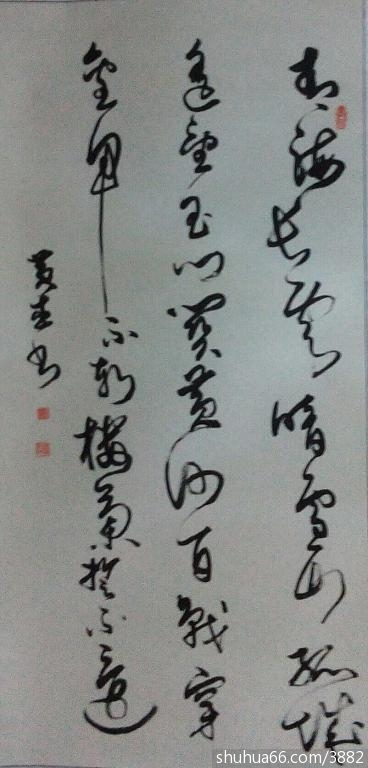 青海长雲暗雪山孤城
遥望玉门关黄沙百战穿
金甲不斩楼兰誓不還
书
shuhua66.com/3882